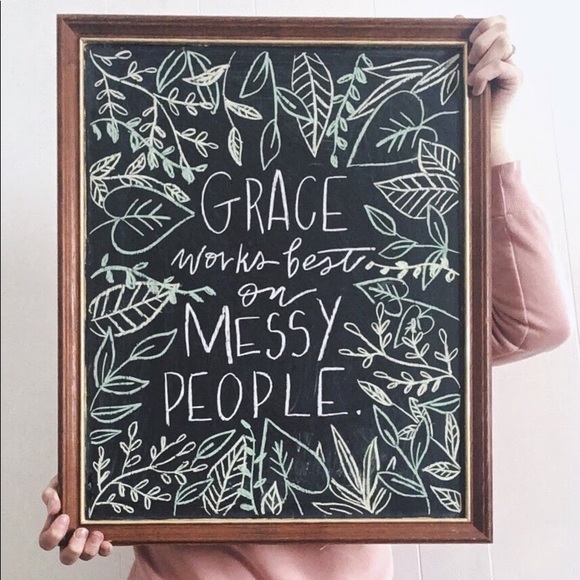 GRACE
works best
on
MESSY
PEOPLE.